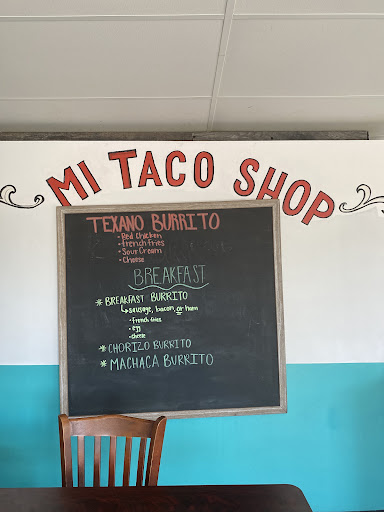 MI TACO SHOP
TEXANO BURRITO
• Red Chicken
• french fries
• Sour Cream
• Cheese
BREAKFAST
* BREAKFAST BURRITO
↳ sausage, bacon, or ham
• french fries
• egg
• cheese
* CHORIZO BURRITO
* MACHACA BURRITO